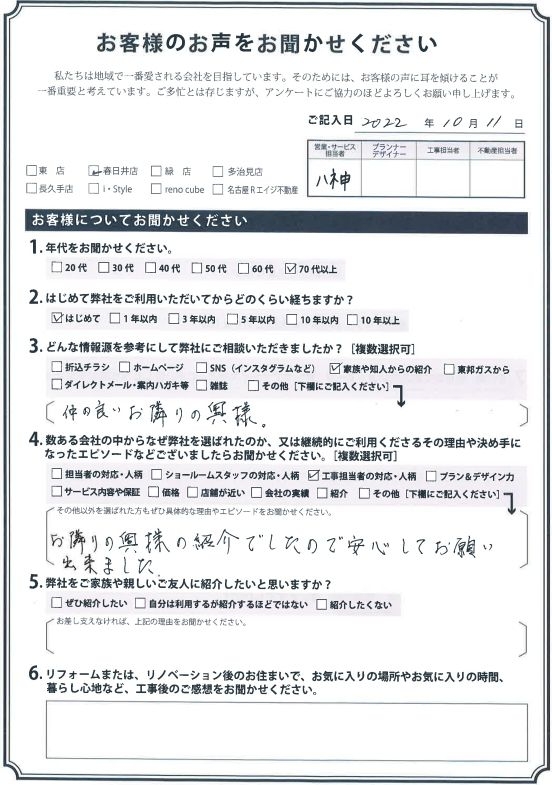 お客様のお声をお聞かせください
私たちは地域で一番愛される会社を目指しています。そのためには、お客様の声に耳を傾けることが
一番重要と考えています。ご多忙とは存じますが、アンケートにご協力のほどよろしくお願い申し上げます。
ご記入日 2022 年 10 月 11 日
営業・サービス担当者 プランナーデザイナー 工事担当者 不動産担当者
八神
□東 店 ☑春日井店 □緑 店 □多治見店
□長久手店 □i・Style □reno cube □名古屋Rエイジ不動産
お客様についてお聞かせください
1. 年代をお聞かせください。
□20代 □30代 □40代 □50代 □60代 ☑70代以上
2. はじめて弊社をご利用いただいてからどのくらい経ちますか？
☑はじめて □1年以内 □3年以内 □5年以内 □10年以内 □10年以上
3. どんな情報源を参考にして弊社にご相談いただきましたか？［複数選択可］
□折込チラシ □ホームページ □SNS（インスタグラムなど） ☑家族や知人からの紹介 □東邦ガスから
□ダイレクトメール・案内ハガキ等 □雑誌 □その他［下欄にご記入ください］
仲の良いお隣りの奥様。
4. 数ある会社の中からなぜ弊社を選ばれたのか、又は継続的にご利用くださるその理由や決め手に
なったエピソードなどございましたらお聞かせください。［複数選択可］
□担当者の対応・人柄 □ショールームスタッフの対応・人柄 ☑工事担当者の対応・人柄 □プラン＆デザイン力
□サービス内容や保証 □価格 □店舗が近い □会社の実績 □紹介 □その他［下欄にご記入ください］
その他以外を選ばれた方もぜひ具体的な理由やエピソードをお聞かせください。
お隣りの奥様の紹介でしたので安心してお願い
出来ました
5. 弊社をご家族や親しいご友人に紹介したいと思いますか？
□ぜひ紹介したい □自分は利用するが紹介するほどではない □紹介したくない
お差し支えなければ、上記の理由をお聞かせください。
6. リフォームまたは、リノベーション後のお住まいで、お気に入りの場所やお気に入りの時間、
暮らし心地など、工事後のご感想をお聞かせください。